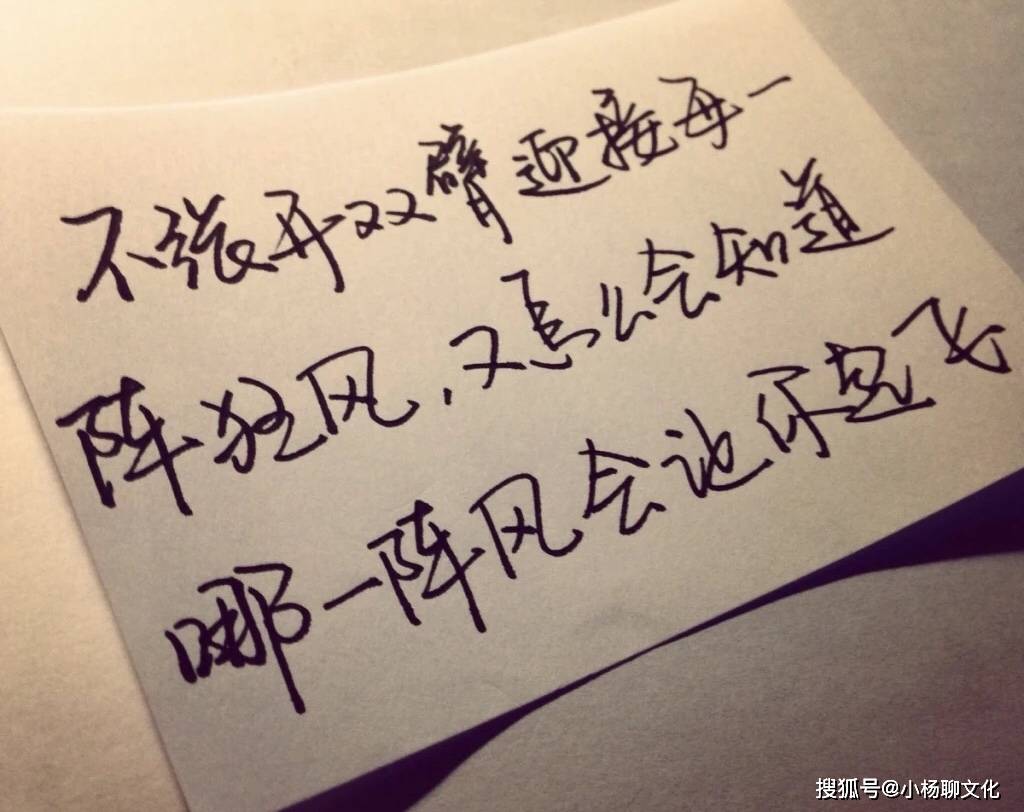 不张开双臂迎接每一
阵狂风，又怎么会知道
哪一阵风会让你起飞
搜狐号@小杨聊文化